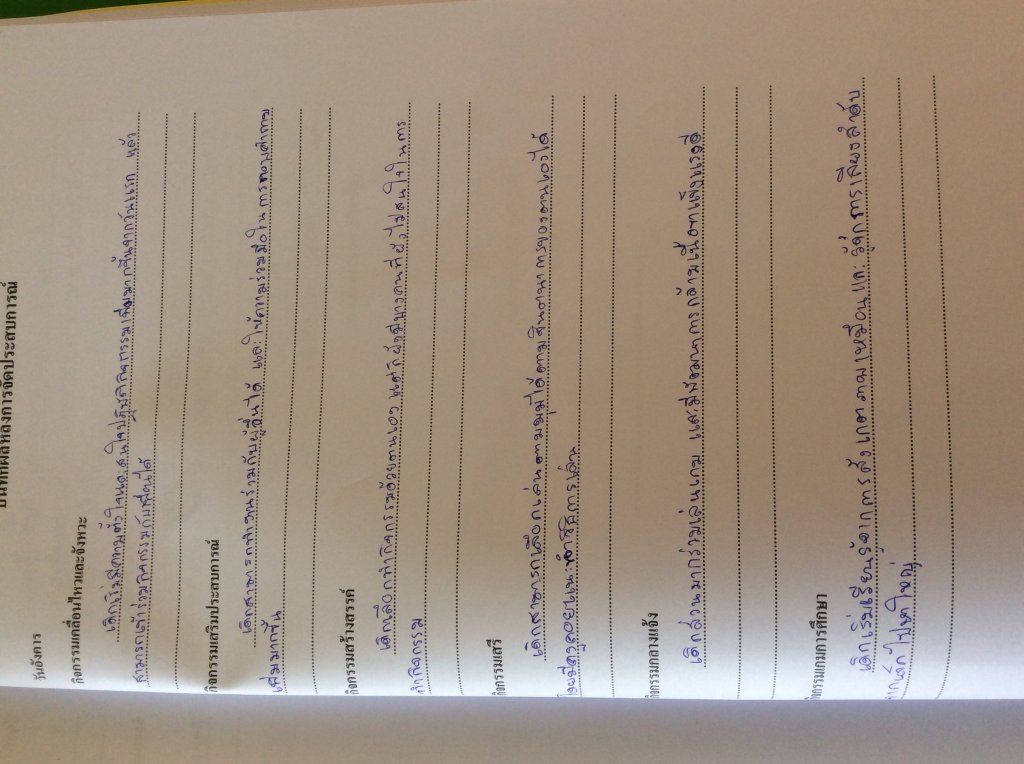 บันทึกผลหลังการจัดประสบการณ์
วันอังคาร
กิจกรรมเคลื่อนไหวและจังหวะ
เด็กเริ่มมีความตั้งใจและสนใจปฏิบัติกิจกรรมเพิ่มมากขึ้นจากวันแรก แล้ว
สามารถเข้าร่วมกิจกรรมกับเพื่อนได้
กิจกรรมเสริมประสบการณ์
เด็กสามารถทำงานร่วมกับผู้อื่นได้ และให้ความร่วมมือในการตอบคำถาม
เพิ่มมากขึ้น
กิจกรรมสร้างสรรค์
เด็กเลือกทำกิจกรรมด้วยตนเอง แต่ก็ยังมีบางคนที่ยังไม่สนใจในการ
ทำกิจกรรม
กิจกรรมเสรี
เด็กสามารถเลือกเล่นตามมุมได้ตามจินตนาการของตนเองได้
โดยมีครูคอยแนะนำวิธีการเล่น
กิจกรรมกลางแจ้ง
เด็กส่วนมากร่วมเล่นเกม และมีพัฒนาการกล้ามเนื้อขาแข็งแรงดี
กิจกรรมเกมการศึกษา
เด็กเริ่มเรียนรู้จากการสังเกตภาพเหมือนและรู้จักการเรียงลำดับ
จากเล็กไปหาใหญ่